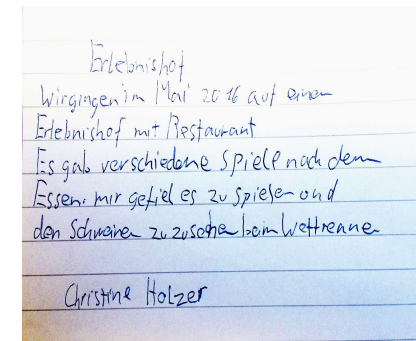 Erlebnishof
Wirgingen im Mai 2016 auf einem
Erlebnishof mit Restaurant
Es gab verschiedene Spiele nach dem
Essen. mir gefiel es zu spielen und
den Schweinen zu zusehen beim Wettrennen
Christine Holzer